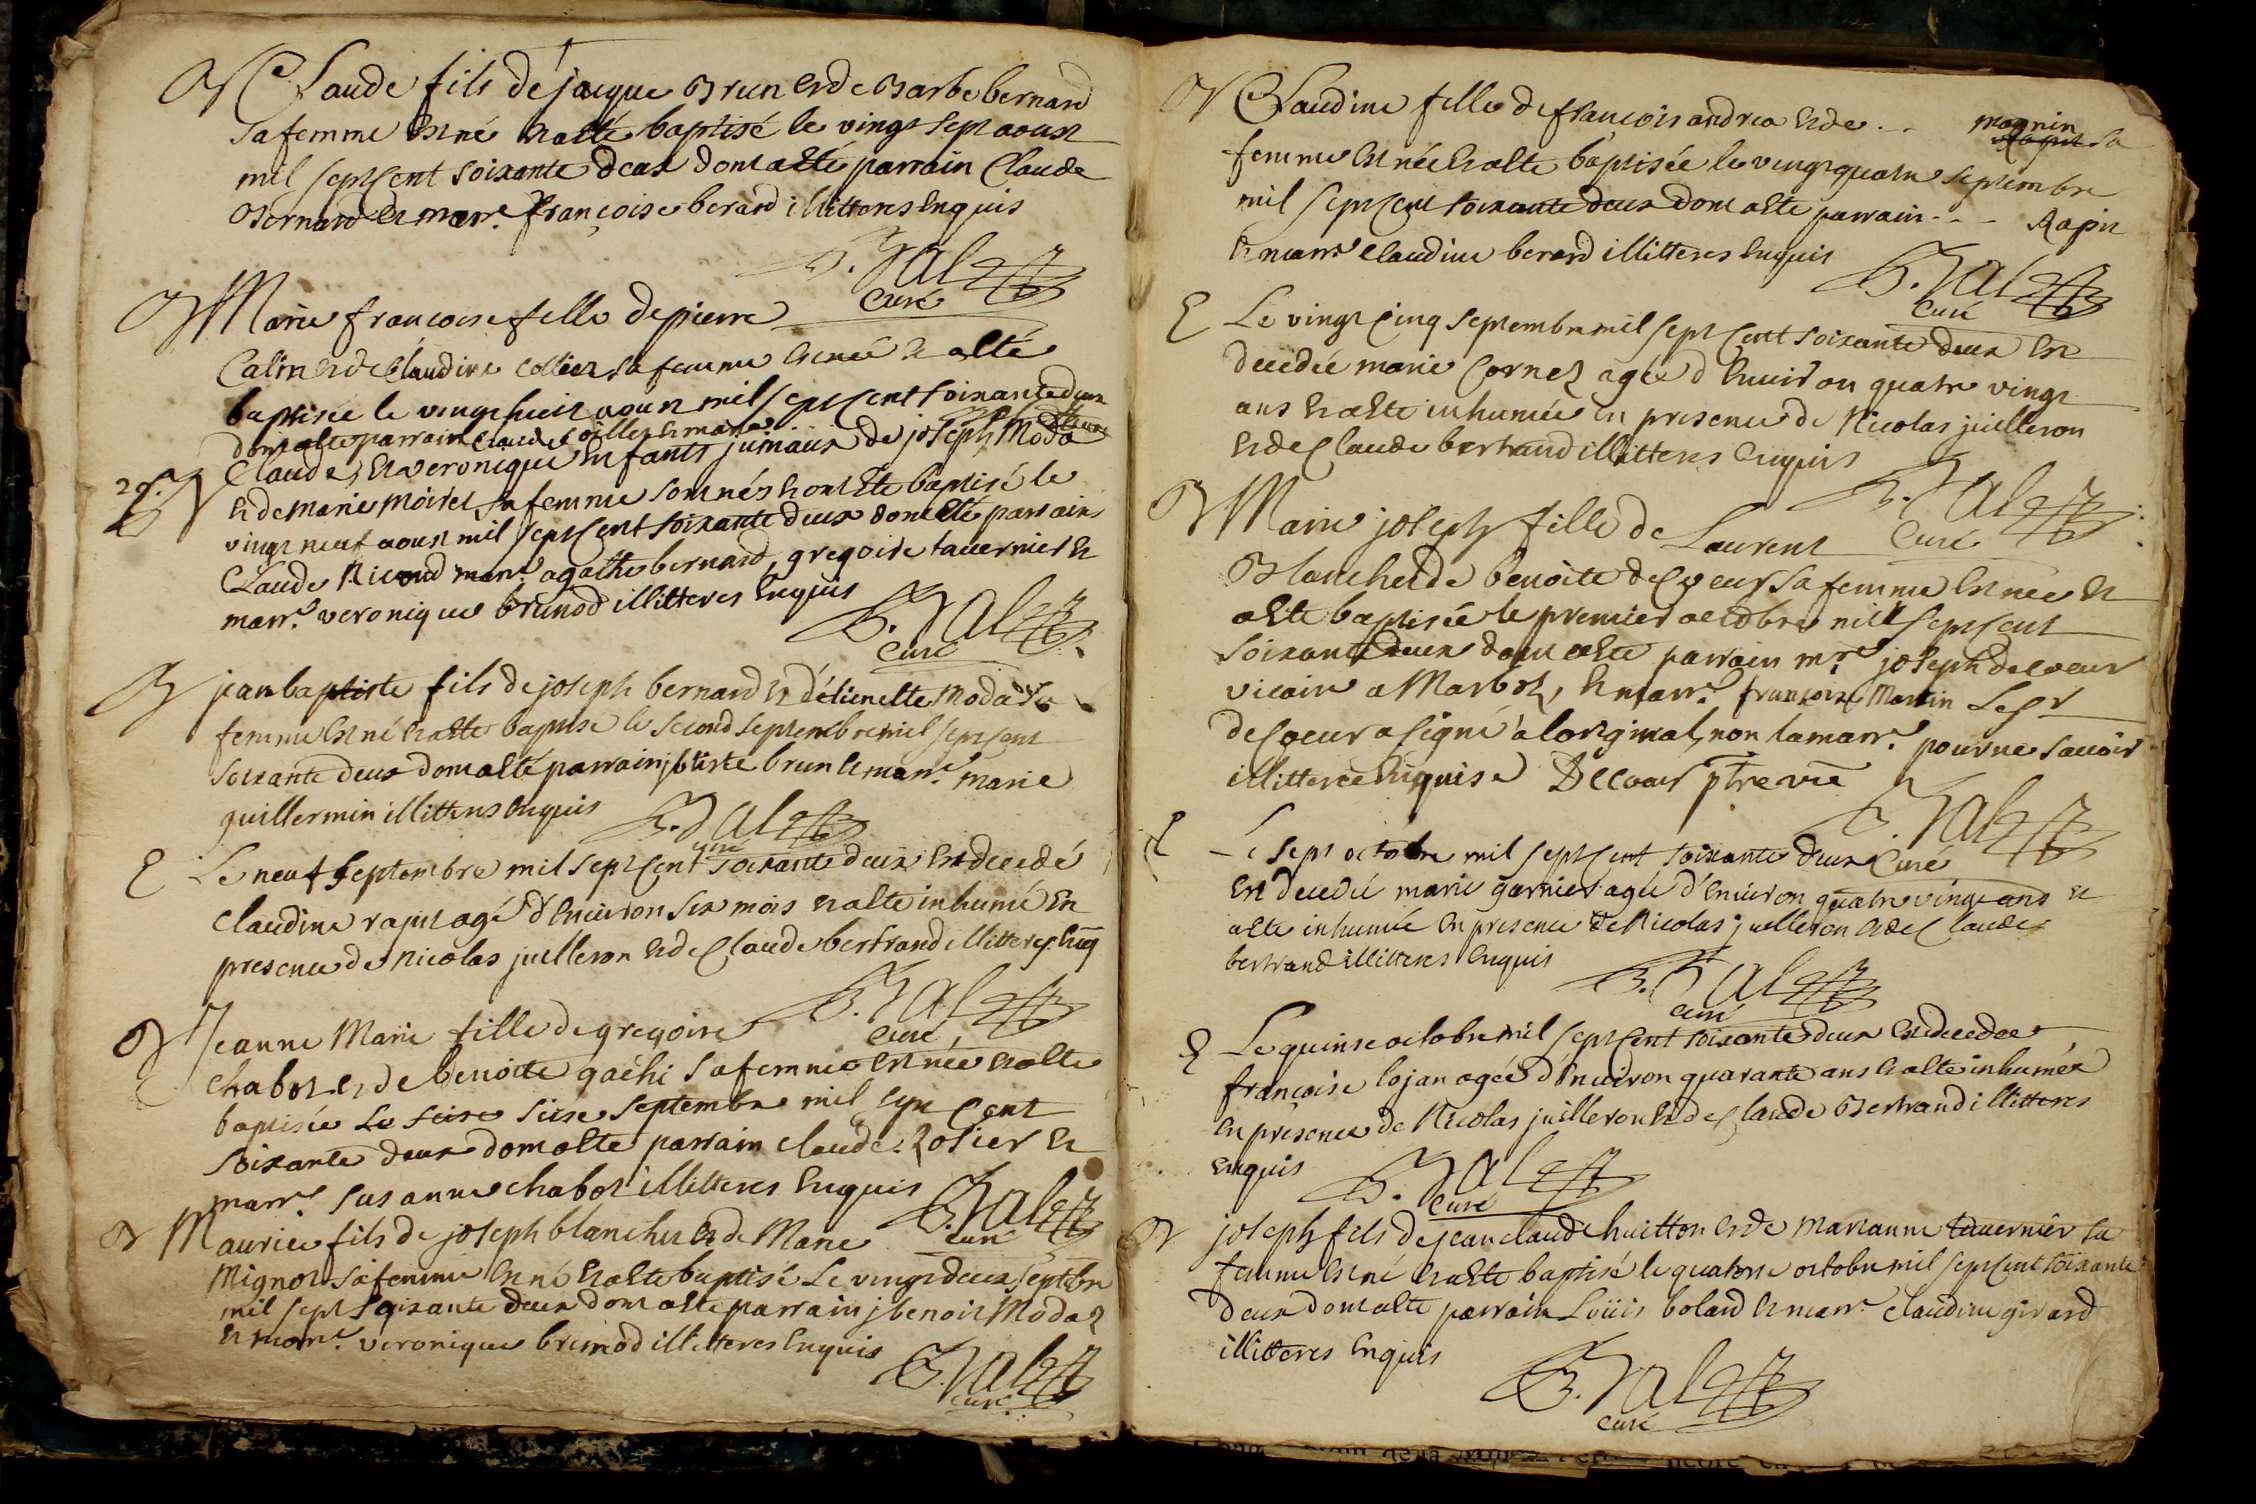 B Claude fils de jacque Brun et de Barbe bernard
sa femme est né et a été baptisé le vingt sept aoust
mil sept cent soixante deux dont a été parrain Claude
Bernard et marr.e françoise berard illitteres enquis
curé
B Marie françoise fille de pierre
Calin et de Claudine collier sa femme est née et a été
baptisée le vingt huit aoust mil sept cent soixante deux
dont a été parrain Claude et marr.e
B Claude, et veronique enfants jumaux de joseph Moda
et de Marie Moiret sa femme sont nés et ont été baptisé le
vingt neuf aoust mil sept cent soixante deux dont été parrains
Claude marr.e agathe bernard, gregoire tavernier et
marr.e veronique brunod illitteres enquis
curé
B jean baptiste fils de joseph bernard et d'étiennette Moda sa
femme est né et a été baptisé le second septembre mil sept cent
soixante deux dont a été parrain jbtiste brun et marr.e marie
guillermin illitteres enquis
curé
E Le neuf septembre mil sept cent soixante deux est decedé
claudine rapit agé d'environ six mois et a été inhumé en
presence de nicolas juilleron et de Claude bertrand illitteres enq
curé
B Jeanne Marie fille de gregoire
chabot et de benoite gachi sa femme est née et a été
baptisée le seise septembre mil sept Cent
soixante deux dont a été parrain claude rosier et
marr.e susanne chabot illitteres enquis
curé
B Maurice fils de joseph blanchet et de Marie
Mignot sa femme est né et a été baptisé Le vingt deux septbre
mil sept soixante deux dont a été parrain jbenoit Modaz
et marr.e veronique brunod illitteres enquis
curé
B Claudine fille de francois andrea et de . . magnin
sa
femme est née et a été baptisée le vingt quatre septembre
mil sept cent soixante deux dont a été parrain - - - Rapit
et marr.e claudine berard illitteres enquis
curé
E Le vingt cinq septembre mil sept cent soixante deux est
decedée marie Cornez agée d'environ quatre vingt
ans et a été inhumée en presence de Nicolas juilleron
et de Claude bertrand illitteres enquis
curé
B Marie joseph fille de Laurent
Blanchet de benoite deCoeur sa femme est née et
a été baptisée le premier octobre mil sept cent
soixante deux dont a été parrain mr. joseph decoeur
vicaire a Marboz, et marr.e françoise Martin Le sr
deCoeur a signé a l'original, non la marr.e pour ne savoir
illitterée enquise Decoeur ptre vic
curé
E Le sept octobre mil sept cent soixante deux
est decedée marie garnier agée d'environ quatre vingt ans et
a été inhumée en presence de Nicolas juilleron et de Claude
bertrand illitteres enquis
curé
E Le quinse octobre mil sept cent soixante deux est decedee
françoise lojan agée d'environ quarante ans et a été inhumée
en presence de Nicolas juilleron et de Claude Bertrand illitteres
enquis
curé
B joseph fils de jean claude huitton et de marianne tavernier sa
femme est né et a été baptisé le quatorse octobre mil sept cent soixante
deux dont a été parrain Loüis bolard et marr.e claudine girard
illitteres enquis
curé